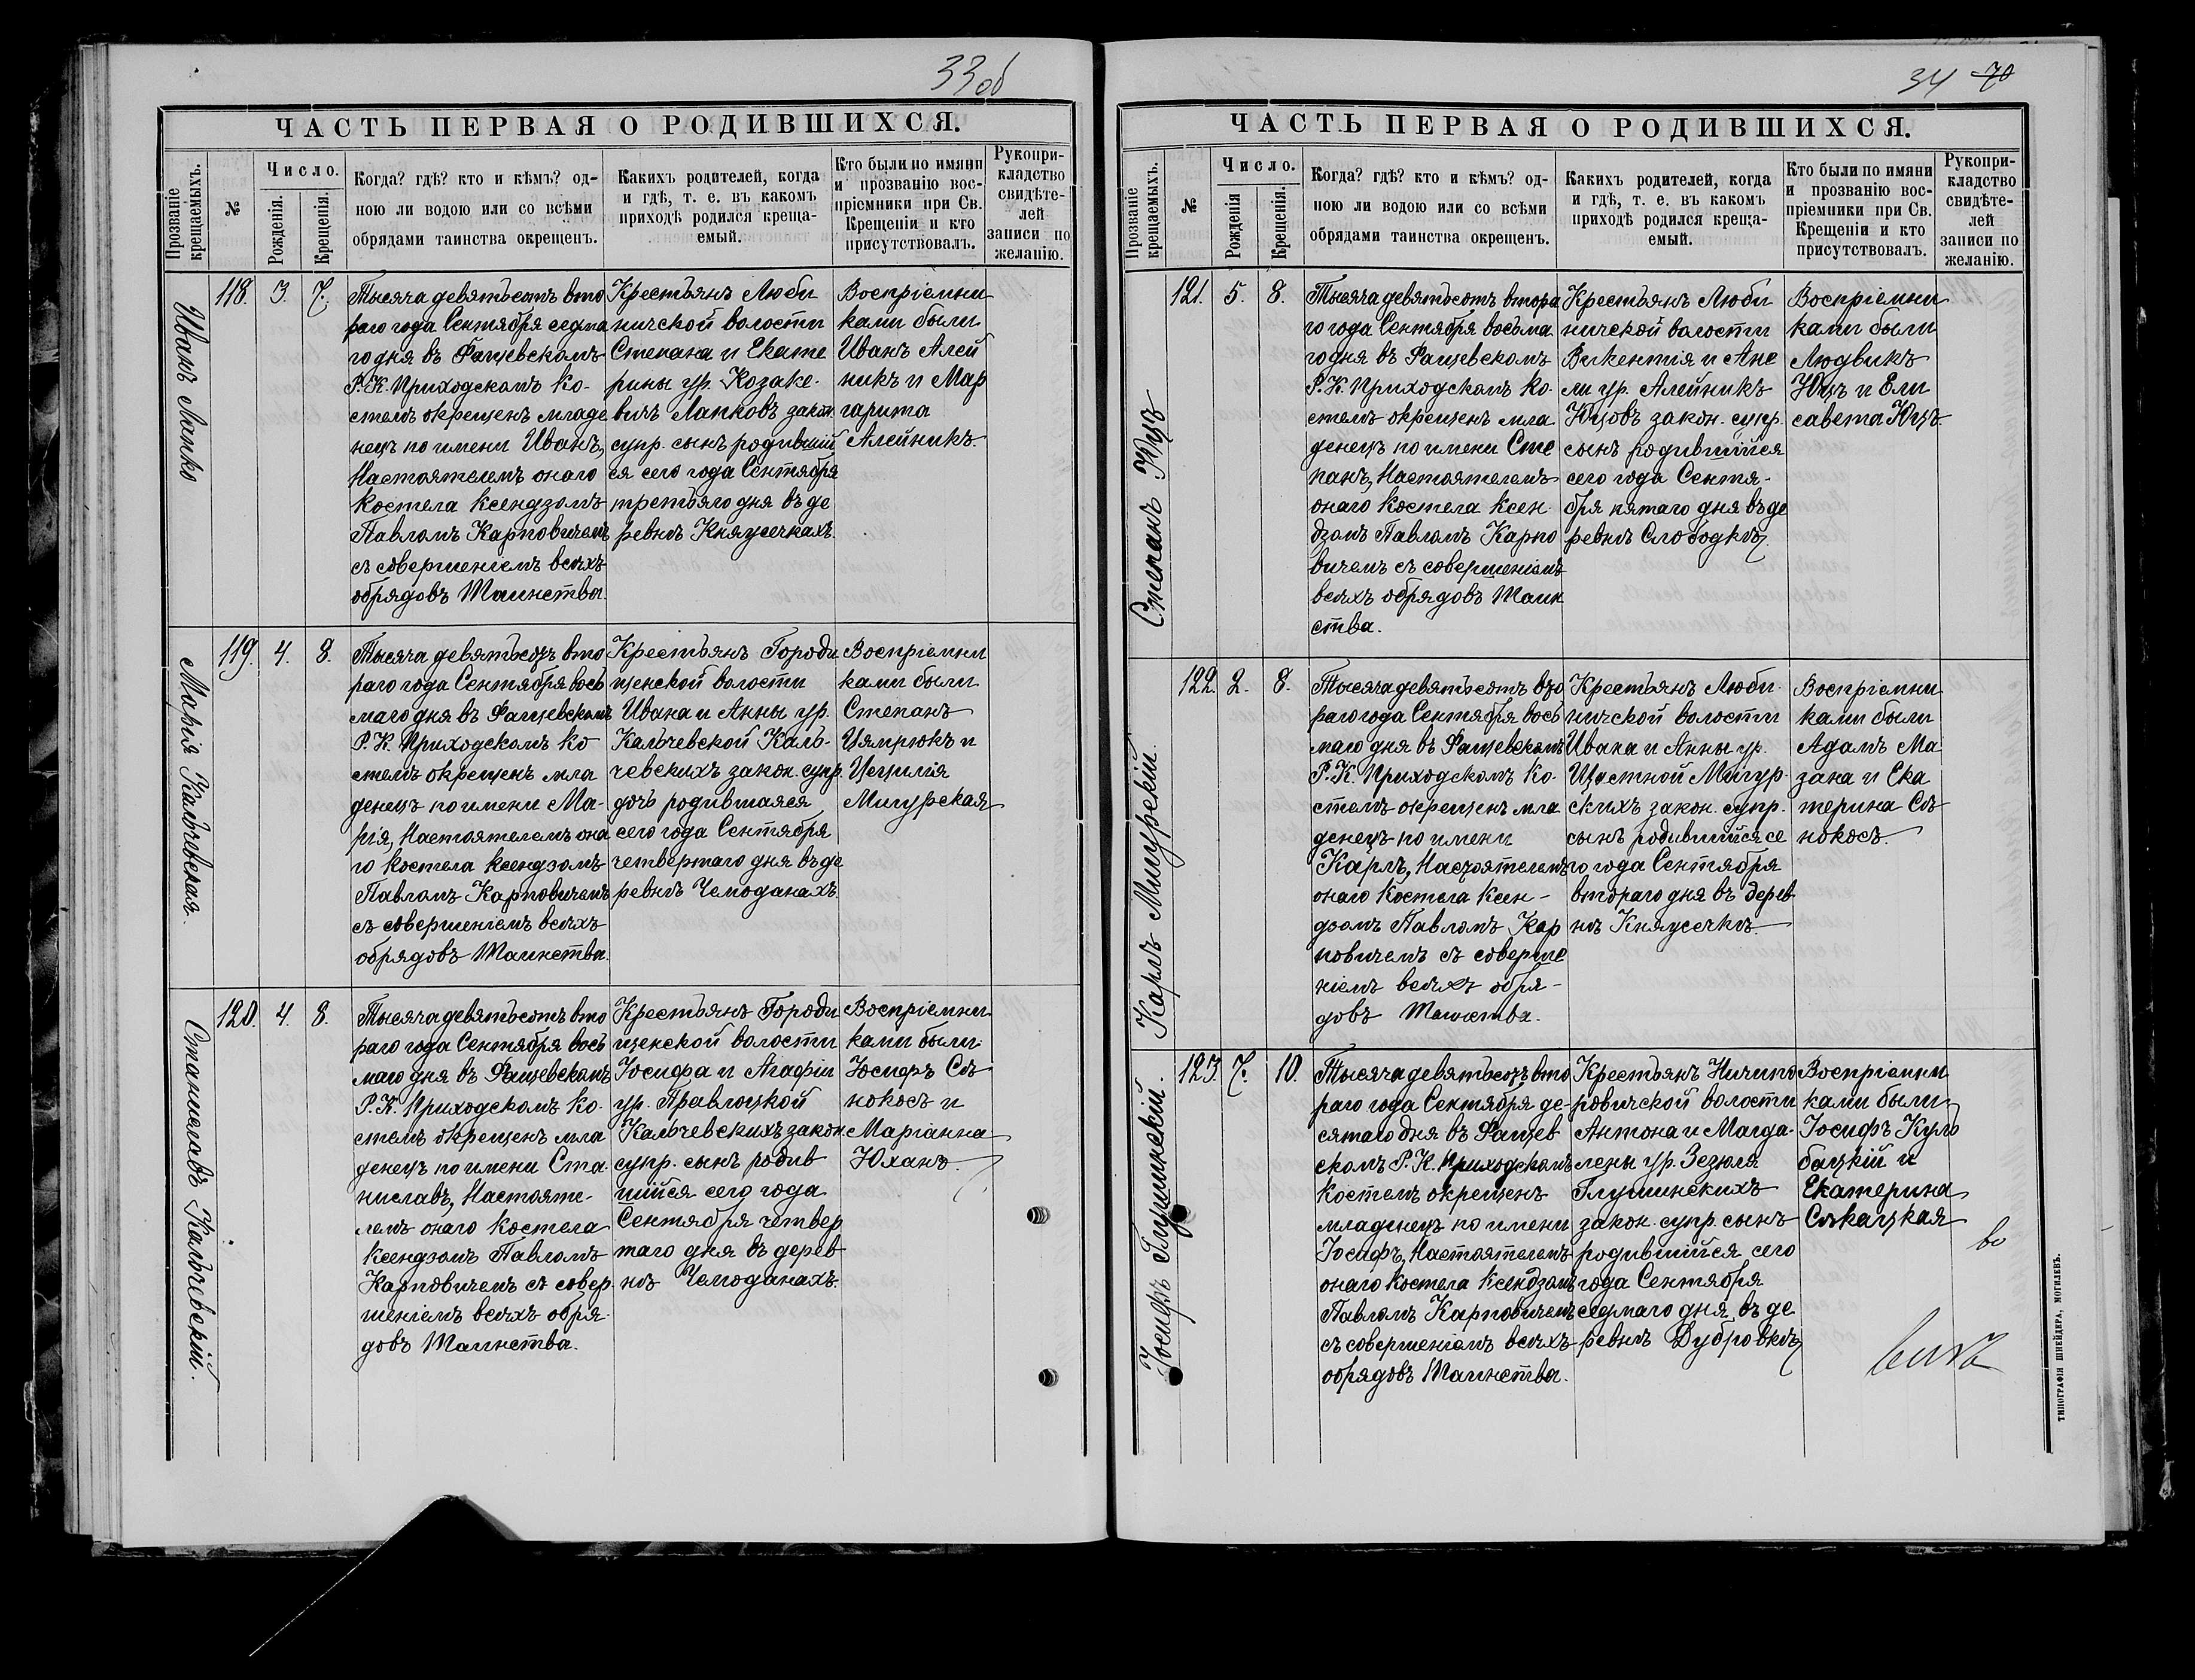 33 об
ЧАСТЬ ПЕРВАЯ О РОДИВШИХСЯ.
Прозваніе
крещаемыхъ.
№
Число.
Рожденія.
Крещенія.
Когда? гдѣ? кто и кѣмъ? од-
ною ли водою или со всѣми
обрядами таинства окрещенъ.
Какихъ родителей, когда
и гдѣ, т. е. въ какомъ
приходѣ родился креща-
емый.
Кто были по имяни
и прозванію вос-
пріемники при Св.
Крещеніи и кто
присутствовалъ.
Рукопри-
кладство
свидѣте-
лей
записи по
желанію.
Иванъ Лапко
118.
3.
7.
Тысяча девятьсотъ вто
раго года Сентября седма
го дня въ Фащевскомъ
Р. К. Приходскомъ ко-
стелѣ окрещенъ младе
нецъ по имени Иванъ,
Настоятелемъ онаго
костела ксендзомъ
Павломъ Карповичемъ
съ совершеніемъ всѣхъ
обрядовъ Таинства.
Крестьянъ Люби
ничской волости
Степана и Екате
рины ур. Козаке-
вичъ Лапковъ закон.
супр. сынъ родившій
ся сего года Сентября
третьяго дня въ де
ревнѣ Княжечкахъ.
Воспріемни
ками были
Иванъ Алей
никъ и Мар
гарита
Алейникъ.
Марія Кальчевская.
119.
4.
8.
Тысяча девятьсотъ вто
раго года Сентября вось
маго дня въ Фащевскомъ
Р. К. Приходскомъ ко
стелѣ окрещенъ мла
денецъ по имени Ма-
рія, Настоятелемъ она
го костела ксендзомъ
Павломъ Карповичемъ
съ совершеніемъ всѣхъ
обрядовъ Таинства.
Крестьянъ Городи
щенской волости
Ивана и Анны ур.
Кальчевской Каль-
чевскихъ закон. супр.
дочь родившаяся
сего года Сентября
четвертаго дня въ де
ревнѣ Чемоданахъ.
Воспріемни
ками были
Степанъ
Цямрюкъ и
Цецилія
Мигурская
Станиславъ Кальчевскій.
120.
4.
8.
Тысяча девятьсотъ вто
раго года Сентября вось
маго дня въ Фащевскомъ
Р. К. Приходскомъ ко-
стелѣ окрещенъ мла
денецъ по имени Ста-
ниславъ, Настояте-
лемъ онаго костела
ксендзомъ Павломъ
Карповичемъ съ совер
шеніемъ всѣхъ обря-
довъ Таинства.
Крестьянъ Городи
щенской волости
Іосифа и Агафіи
ур. Правлоцкой
Кальчевскихъ закон
супр. сынъ родив
шійся сего года
Сентября четвер
таго дня въ дерев
нѣ Чемоданахъ.
Воспріемни-
ками были
Іосифъ Сѣ
нокосъ и
Маріанна
Юханъ.
34 70
ЧАСТЬ ПЕРВАЯ О РОДИВШИХСЯ.
Прозваніе
крещаемыхъ.
№
Число.
Рожденія
Крещенія.
Когда? гдѣ? кто и кѣмъ? од-
ною ли водою или со всѣми
обрядами таинства окрещенъ.
Какихъ родителей, когда
и гдѣ, т. е. въ какомъ
приходѣ родился креща-
емый.
Кто были по имяни
и прозванію вос-
пріемники при Св.
Крещеніи и кто
присутствовалъ.
Рукопри-
кладство
свидѣте-
лей
записи по
желанію.
Степанъ Юцъ
121.
5.
8.
Тысяча девятьсотъ втора
го года Сентября восьма
го дня въ Фащевскомъ
Р. К. Приходскомъ ко-
стелѣ окрещенъ мла
денецъ по имени Сте
панъ, Настоятелемъ
онаго костела ксен-
дзомъ Павломъ Карпо
вичемъ съ совершеніемъ
всѣхъ обрядовъ Таин
ства.
Крестьянъ Люби
ничской волости
Викентія и Ане
ли ур. Алейникъ
Юцовъ закон. супр.
сынъ родившійся
сего года Сентя-
бря пятаго дня въ де
ревнѣ Слободкѣ.
Воспріемни
ками были
Людвикъ
Юцъ и Ели
савета Юцъ.
Карлъ Мигурскій.
122.
2.
8.
Тысяча девятьсотъ вто
раго года Сентября вось
маго дня въ Фащевскомъ
Р. К. Приходскомъ ко-
стелѣ окрещенъ мла
денецъ по имени
Карлъ, Настоятелемъ
онаго костела ксен-
дзомъ Павломъ Кар
повичемъ съ соверше
ніемъ всѣхъ обря-
довъ Таинства.
Крестьянъ Люби-
ничской волости
Ивана и Анны ур.
Цвѣтной Мигур-
скихъ закон. супр.
сынъ родившійся се
го года Сентября
втораго дня въ дерев
нѣ Княжечкѣ.
Воспріемни
ками были
Адамъ Ма
зана и Ека
терина Сѣ
нокосъ.
Іосифъ Глушинскій.
123.
7.
10.
Тысяча девятьсотъ вто
раго года Сентября де-
сятаго дня въ Фащев
скомъ Р. К. Приходскомъ
костелѣ окрещенъ
младенецъ по имени
Іосифъ, Настоятелемъ
онаго костела ксендзомъ
Павломъ Карповичемъ
съ совершеніемъ всѣхъ
обрядовъ Таинства.
Крестьянъ Ничипо
ровичской волости
Антона и Магда-
лены ур. Зезюля
Глушинскихъ
закон. супр. сынъ
родившійся сего
года Сентября
седьмаго дня въ де
ревнѣ Дубровкѣ.
Воспріемни
ками были
Іосифъ Куло
бацкій и
Екатерина
Сѣкацкая
ТИПОГРАФІЯ ШНЕЙДЕРА, МОГИЛЕВЪ.